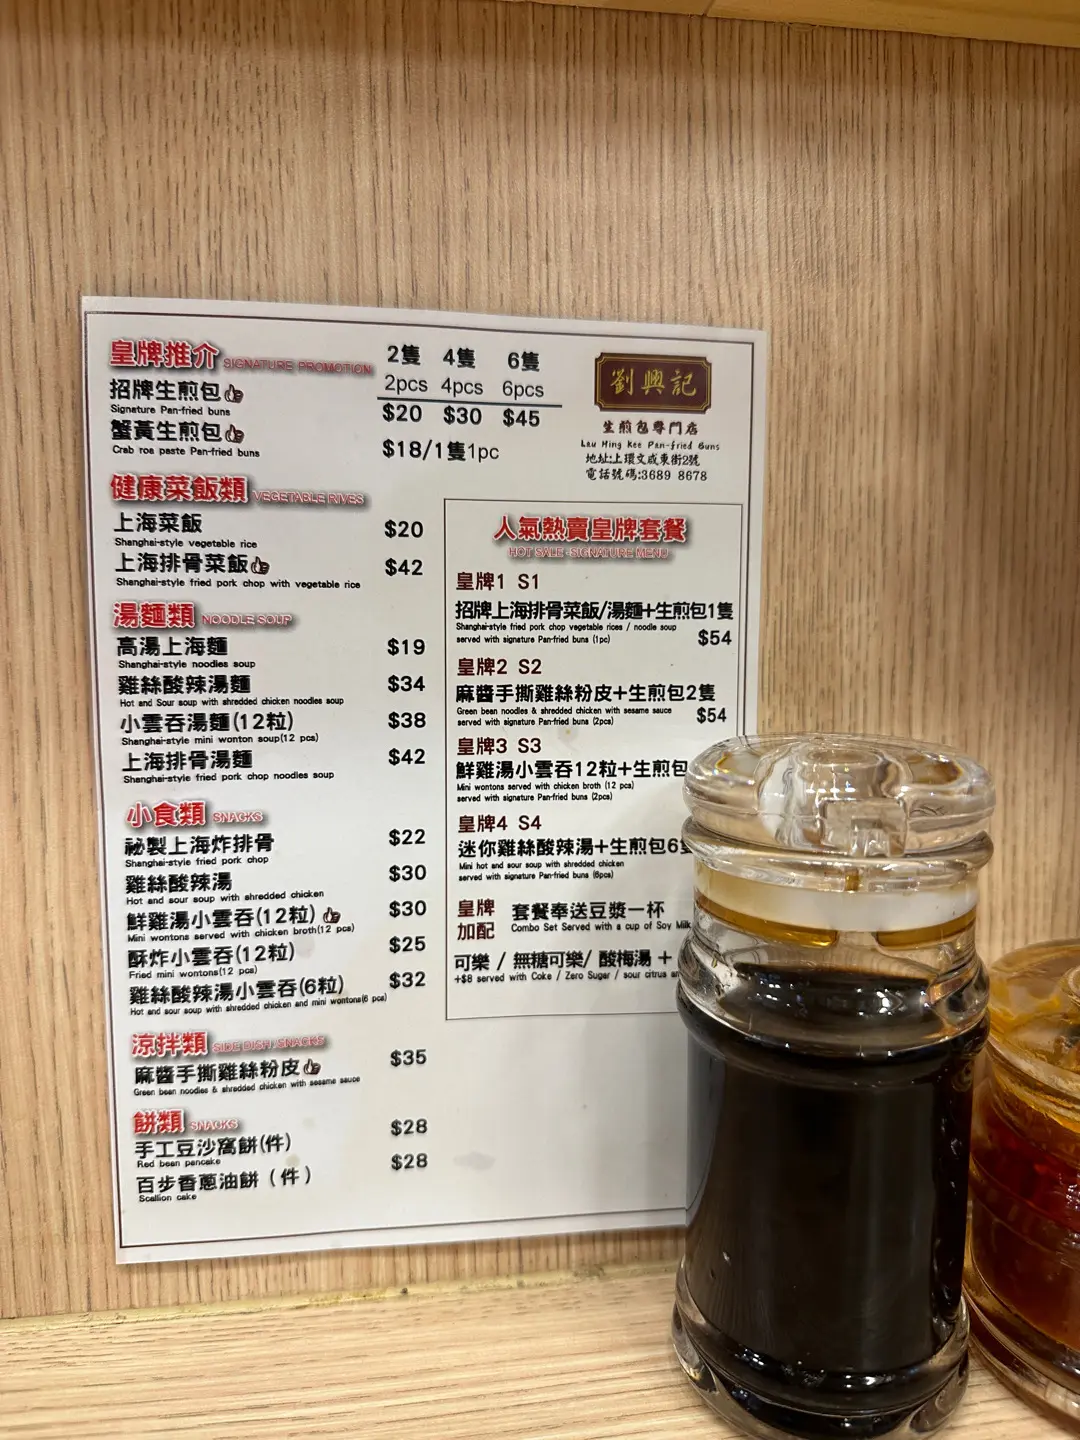 皇牌推介 SIGNATURE PROMOTION 2隻 4隻 6隻
2pcs 4pcs 6pcs
招牌生煎包 $20 $30 $45
Signature Pan-fried buns
蟹黃生煎包 $18/1隻1pc
Crab roa paste Pan-fried buns
劉興記
生煎包專門店
Lau Hing Kee Pan-fried Buns
地址:上環文咸東街2號
電話號碼:3689 8678
健康菜飯類 VEGETABLE RIVES
上海菜飯 $20
Shanghai-style vegetable rice
上海排骨菜飯 $42
Shanghai-style fried pork chop with vegetable rice
湯麵類 NOODLE SOUP
高湯上海麵 $19
Shanghai-style noodles soup
雞絲酸辣湯麵 $34
Hot and Sour soup with shredded chicken noodles soup
小雲吞湯麵(12粒) $38
Shanghai-style mini wonton soup(12 pcs)
上海排骨湯麵 $42
Shanghai-style fried pork chop noodles soup
小食類 SNACKS
祕製上海炸排骨 $22
Shanghai-style fried pork chop
雞絲酸辣湯 $30
Hot and sour soup with shredded chicken
鮮雞湯小雲吞(12粒) $30
Mini wontons served with chicken broth(12 pcs)
酥炸小雲吞(12粒) $25
Fried mini wontons(12 pcs)
雞絲酸辣湯小雲吞(6粒) $32
Hot and sour soup with shredded chicken and mini wontons(6 pcs)
涼拌類 SIDE DISH /SNACKS
麻醬手撕雞絲粉皮 $35
Green bean noodles & shredded chicken with sesame sauce
餅類 SNACKS
手工豆沙窩餅(件) $28
Red bean pancake
百步香蔥油餅(件) $28
Scallion cake
人氣熱賣皇牌套餐
HOT SALE -SIGNATURE MENU
皇牌1 S1
招牌上海排骨菜飯/湯麵+生煎包1隻
Shanghai-style fried pork chop vegetable rices / noodle soup
served with signature Pan-fried buns (1pc) $54
皇牌2 S2
麻醬手撕雞絲粉皮+生煎包2隻
Green bean noodles & shredded chicken with sesame sauce
served with signature Pan-fried buns (2pcs) $54
皇牌3 S3
鮮雞湯小雲吞12粒+生煎包
Mini wontons served with chicken broth (12 pcs)
served with signature Pan-fried buns (2pcs)
皇牌4 S4
迷你雞絲酸辣湯+生煎包6隻
Mini hot and sour soup with shredded chicken
served with signature Pan-fried buns (6pcs)
皇牌加配 套餐奉送豆漿一杯
Combo Set Served with a cup of Soy Milk
可樂 / 無糖可樂/ 酸梅湯 +
+$8 served with Coke / Zero Sugar / sour citrus